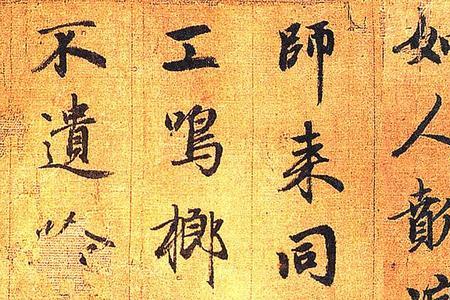 如人
師来同
工鳴榔
不遺吟